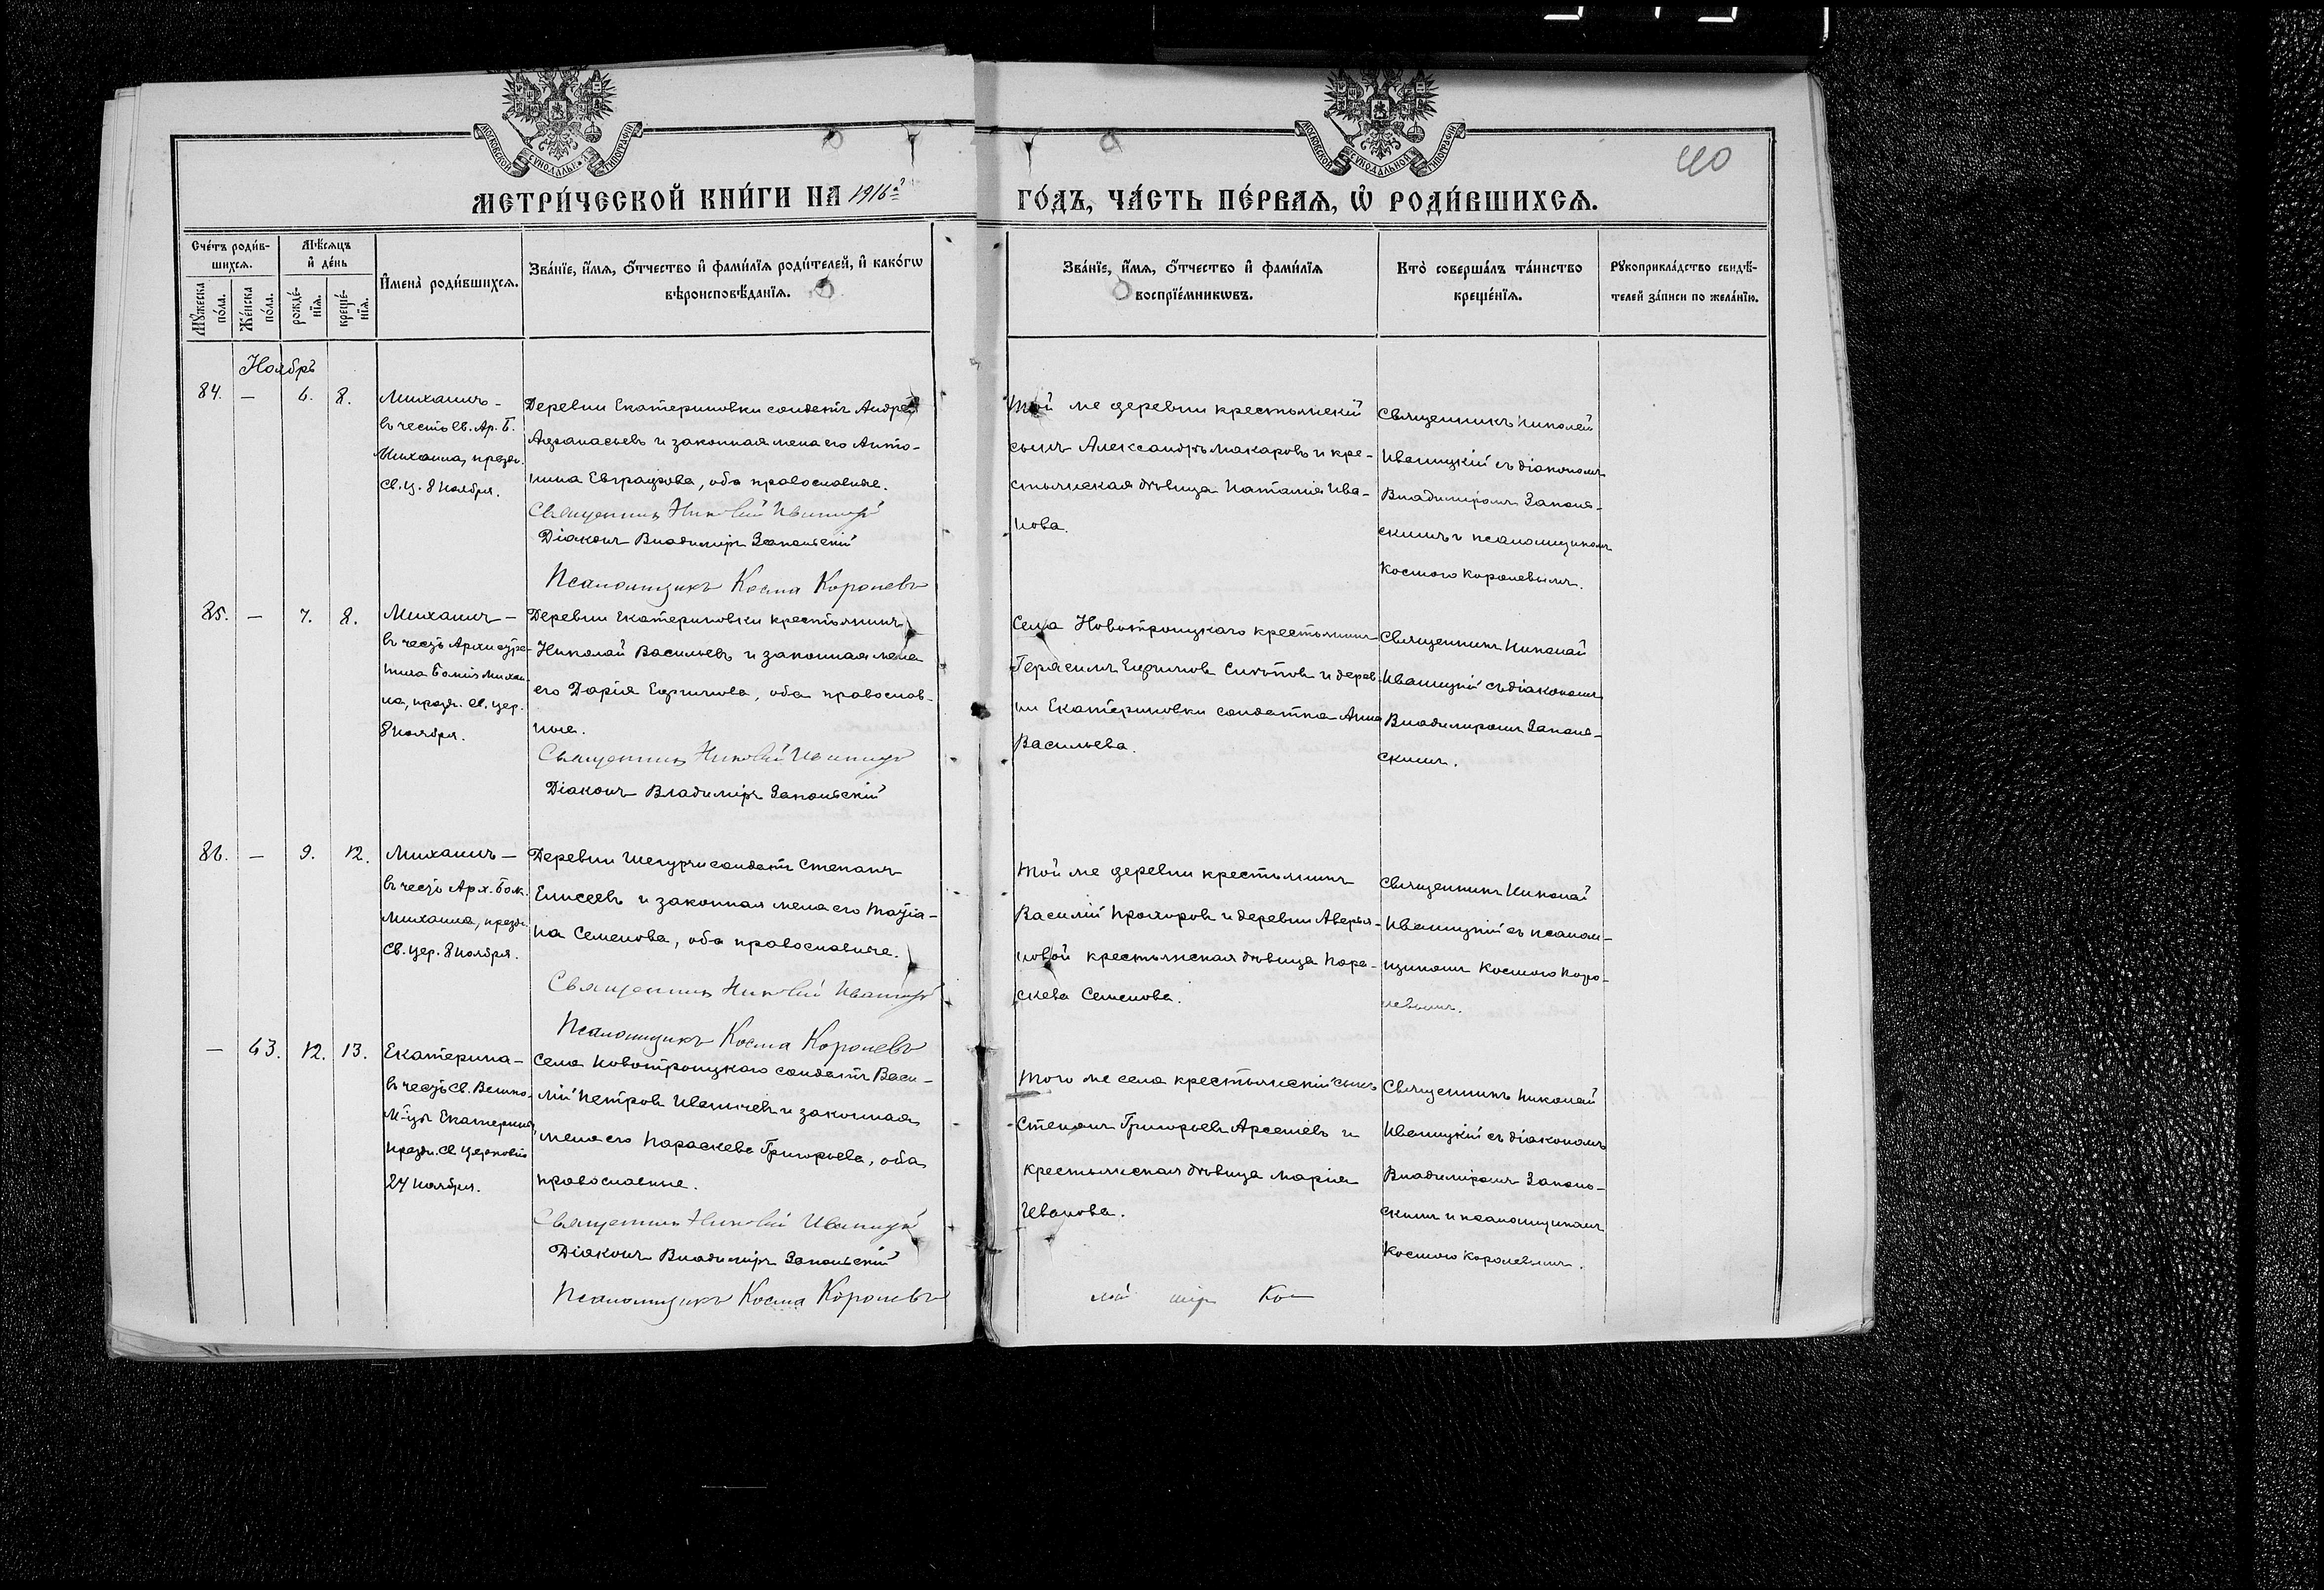 МОСКОВСКОЙ СѴНОДАЛЬНОЙ ТИПОГРАФІИ
МОСКОВСКОЙ СѴНОДАЛЬНОЙ ТИПОГРАФІИ
40
МЕТРИ́ЧЕСКОЙ КНИ́ГИ НА 1916й
ГО́ДЪ, ЧА́СТЬ ПЕ́РВАѦ, Ѡ РОДИ́ВШИХСѦ.
Сче́тъ роди́в-
шихсѧ.
Мꙋ́жеска
по́ла.
Же́нска
по́ла.
Мѣ́сѧцъ
и҆ де́нь
рожде́-
нїѧ.
креще́-
нїѧ.
И҆мена̀ роди́вшихсѧ.
Зва́нїе, и҆́мѧ, ѻ҆́тчество и҆ фами́лїѧ роди́телей, и҆ како́гѡ
вѣроисповѣ́данїѧ.
Зва́нїе, и҆́мѧ, ѻ҆́тчество и҆ фами́лїѧ
воспрїе́мникѡвъ.
Кто̀ соверша́лъ та́инство
креще́нїѧ.
Рꙋкоприкла́дство свидѣ́-
телей за́писи по жела́нїю.
Ноябрь
84.
—
6.
8.
Михаилъ –
въ честь Св. Ар. Б.
Михаила, праздн.
Св. Ц. 8 Ноября.
Деревни Екатериновки солдатъ Андрей
Аѳанасьевъ и законная жена его Анто-
нина Евграфова, оба православные.
Священникъ Николай Иваницкій
Діаконъ Владиміръ Запольскій
Псаломщикъ Косма Королевъ
Той же деревни крестьянскій
сынъ Александръ Макаровъ и кре-
стьянская дѣвица Наталія Ива-
нова.
Священникъ Николай
Иваницкій съ діакономъ
Владиміромъ Заполь-
скимъ и псаломщикомъ
Космою Королевымъ.
85.
—
7.
8.
Михаилъ –
въ честь Архистра-
тига Божія Михаи-
ла, праздн. Св. Цер.
8 Ноября.
Деревни Екатериновки крестьянинъ
Николай Васильевъ и законная жена
его Дарія Ефимова, оба православ-
ные.
Священникъ Николай Иваницкій
Діаконъ Владиміръ Запольскій
Села Новотроицкаго крестьянинъ
Герасимъ Ефимовъ Сиротовъ и дерев-
ни Екатериновки солдатка Анна
Васильева.
Священникъ Николай
Иваницкій съ діакономъ
Владиміромъ Заполь-
скимъ.
86.
—
9.
12.
Михаилъ –
въ честь Арх. Бож.
Михаила, праздн.
Св. Цер. 8 Ноября.
Деревни солдатъ Степанъ
Елисеевъ и законная жена его Татіа-
на Семенова, оба православные.
Священникъ Николай Иваницкій
Псаломщикъ Косма Королевъ
Той же деревни крестьянинъ
Василій Прохоровъ и деревни Аверья-
новой крестьянская дѣвица Пара-
скева Семенова.
Священникъ Николай
Иваницкій съ псалом-
щикомъ Космою Коро-
левымъ.
—
63.
12.
13.
Екатерина –
въ честь Св. Велико-
М-цы Екатерины,
праздн. Св. Церковію
24 Ноября.
Села Новотроицкаго солдатъ Васи-
лій Петровъ Иванчевъ и законная
жена его Параскева Григорьева, оба
православные.
Священникъ Николай Иваницкій
Діаконъ Владиміръ Запольскій
Псаломщикъ Косма Королевъ
Того же села крестьянскій сынъ
Степанъ Григорьевъ Арсентьевъ и
крестьянская дѣвица Марія
Иванова.
Священникъ Николай
Иваницкій съ діакономъ
Владиміромъ Заполь-
скимъ и псаломщикомъ
Космою Королевымъ.